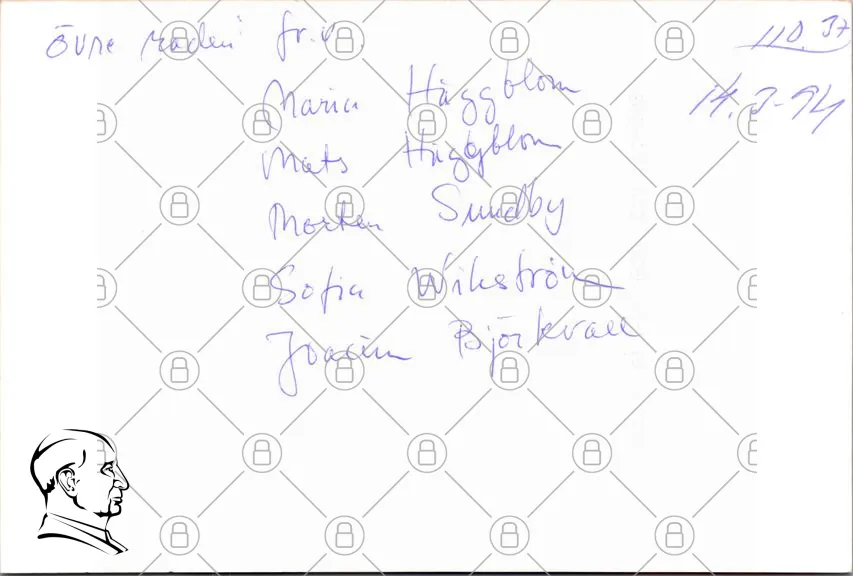 Övre raden fr.v. 110.37
14.3-94
Maria Häggblom
Mats Häggblom
Morten Sundby
Sofia Wikström
Joacim Björkvall